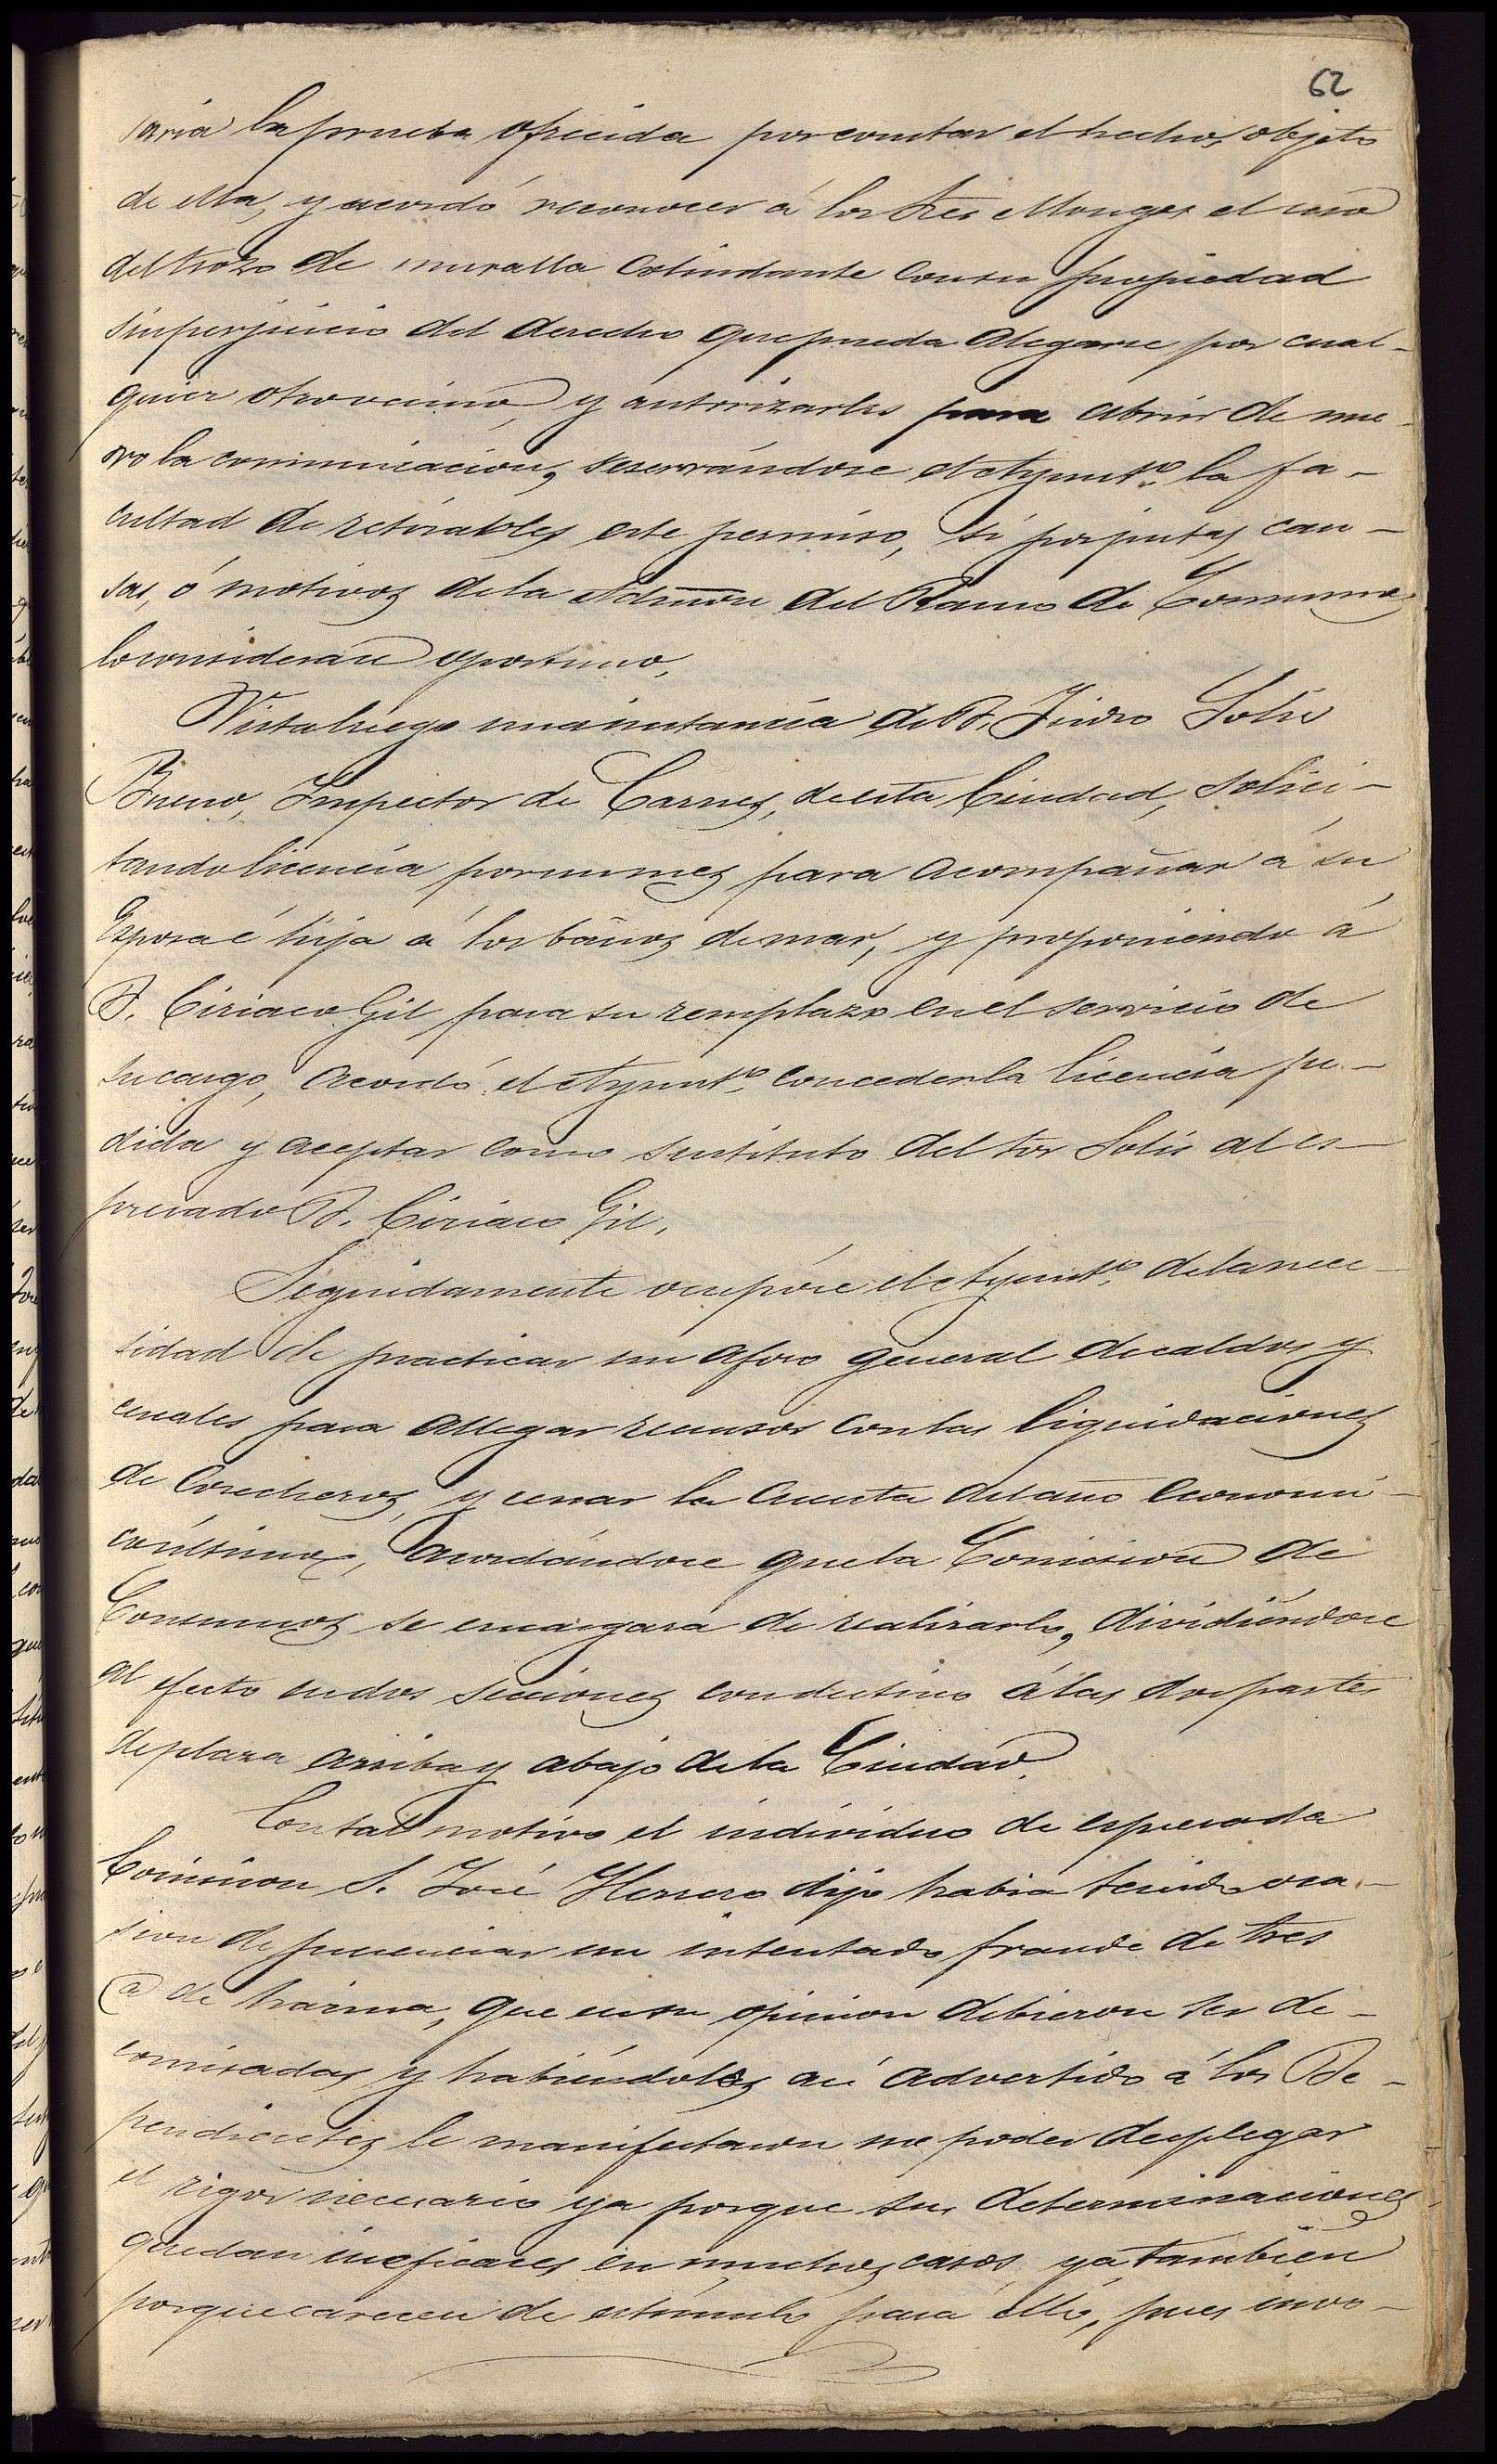 62
saria la prueba ofrecida por constar el hecho, objeto
de ella, y acordó reconocer á los tres Monges el uso
del trozo de muralla colindante con su propiedad
sin perjuicio del derecho que pueda alegarse por cual-
quier otro vecino, y autorizarles para abrir de nue-
vo la comunicacion, reservándose el Ayuntº. la fa-
cultad de retirarles este permiso, si por justas cau-
sas, ó motivos de la Admon del Ramo de Consumos
lo consideráre oportuno.
Vista luego una instancia de D. Isidro Solis
Bueno, Inspector de Carnes, de esta Ciudad, solici-
tando licencia por un mes para acompañar á su
Esposa é hija á los baños de mar, y proponiendo á
D. Ciriaco Gil para su remplazo en el servicio de
su cargo, acordó el Ayuntº. conceder la licencia pe-
dida y aceptar como sustituto del Sor Solis al es-
presado D. Ciriaco Gil.
Seguidamente ocupóse el Ayuntº. de la nece-
sidad de practicar un aforo general de caldos y
cereales para allegar recursos con las liquidaciones
de Cosecheros, y cerrar la cuenta del año economi-
co último, acordándose que la Comision de
Consumos se encargara de realizarlo, dividiéndose
al efecto en dos secciones con destino á las dos partes
de plaza arriba y abajo de la Ciudad.
Con tal motivo el individuo de espresada
Comision S. José Herrero dijo habia tenido oca-
sion de presenciar un intentado fraude de tres
@ de harina, que en su opinion debieron ser de-
comisadas, y habiéndoles asi advertido á los De-
pendientes le manifestaron no poder desplegar
el rigor necesario ya porque sus determinaciones
quedan ineficaces en muchos casos, ya tambien
porque carecen de estimulo para ello, pues invo-